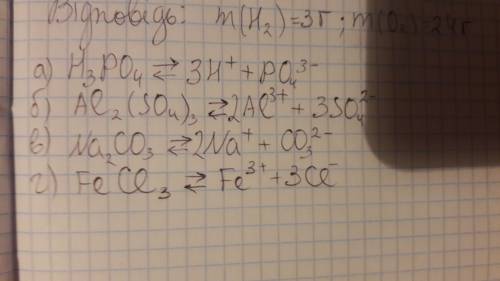 Відповідь: m(H₂)=3г; m(O₂)=24г
а) H₃PO₄ ⇄ 3H⁺ + PO₄³⁻
б) Al₂(SO₄)₃ ⇄ 2Al³⁺ + 3SO₄²⁻
в) Na₂CO₃ ⇄ 2Na⁺ + CO₃²⁻
г) FeCl₃ ⇄ Fe³⁺ + 3Cl⁻